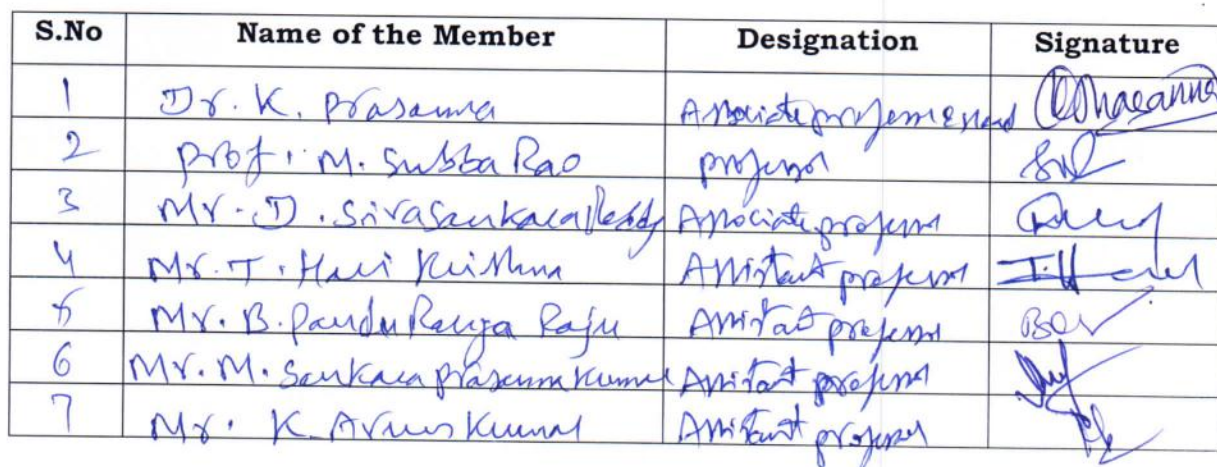 S.No Name of the Member Designation Signature
1 Dr. K. Prasanna Associate professor & Head
2 Prof. M. Subba Rao professor
3 Mr. D. SivaSankaraReddy Associate professor
4 Mr. T. Hari Krishna Assistant professor T. Hari
5 Mr. B. Pandu Ranga Raju Assistant professor
6 Mr. M. Sankara prasanna kumar Assistant professor
7 Mr. K Arun Kumar Assistant professor